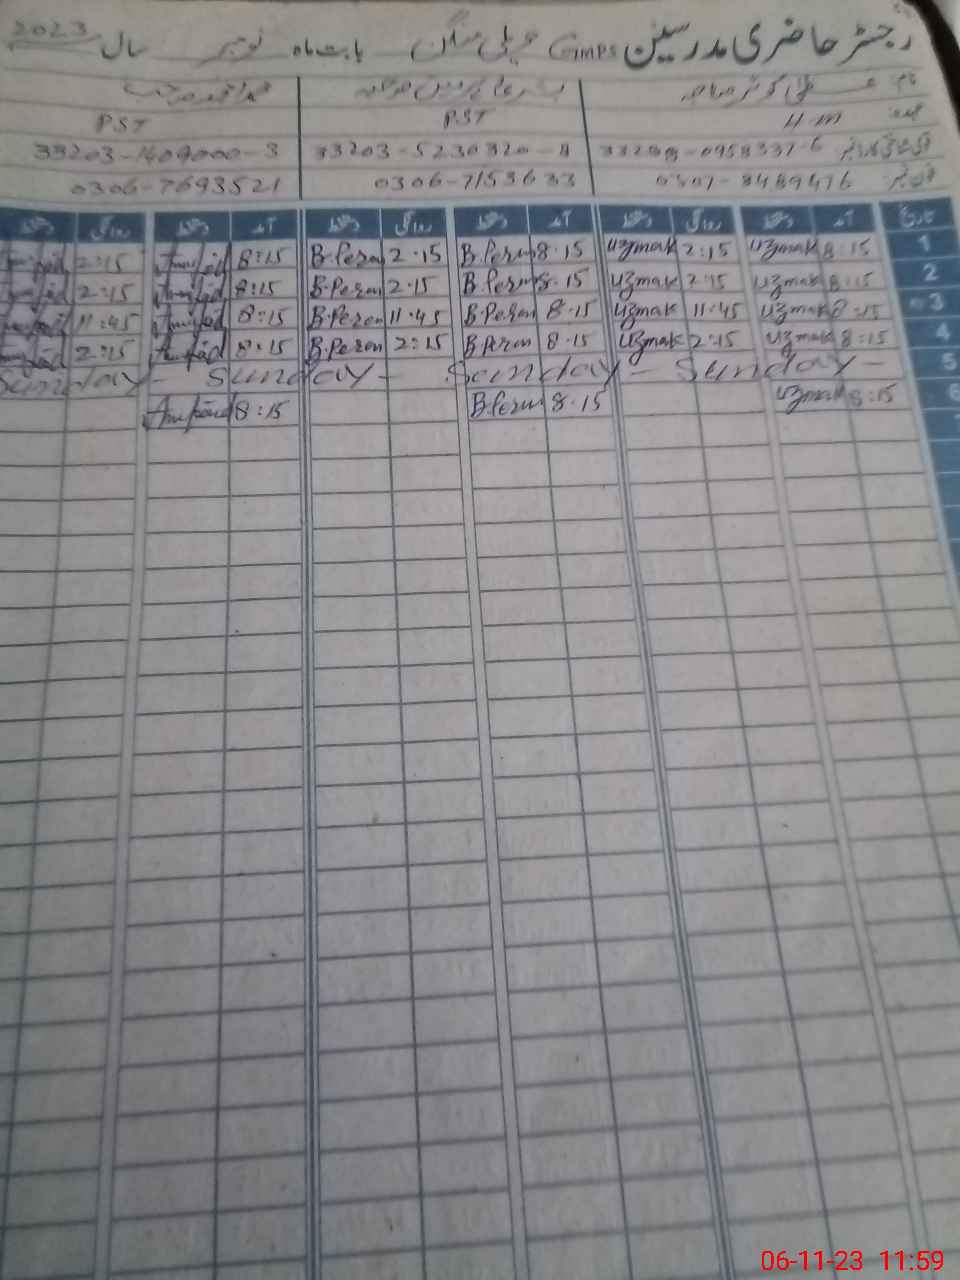 رجسٹر حاضری مدرسین GMPS بابت ماہ نومبر سال 2023
نام:
عہدہ: H-M PST PST
شناختی کارڈ نمبر 33203-5230320-8 33203-1409000-3
فون نمبر: 0307-8489476 0306-7153633 0306-7693521
تاریخ آمد دستخط روانگی دستخط آمد دستخط روانگی دستخط آمد دستخط روانگی دستخط
1 8:15 Uzmak 2:15 Uzmak 8.15 B.Peren 2.15 B.Peren 8:15 Amjad 2:15 Amjad
2 8:15 Uzmak 2:15 Uzmak 8.15 B.Peren 2.15 B.Peren 8:15 Amjad 2:15 Amjad
3 8:15 Uzmak 11:45 Uzmak 8.15 B.Peren 11:45 B.Peren 8:15 Amjad 11:45 Amjad
4 8:15 Uzmak 2:15 Uzmak 8.15 B.Peren 2:15 B.Peren 8:15 Amjad 2:15 Amjad
5 Sunday - Sunday - Sunday - Sunday -
6 8:15 Uzmak 8.15 B.Peren 8:15 Amjad
06-11-23 11:59